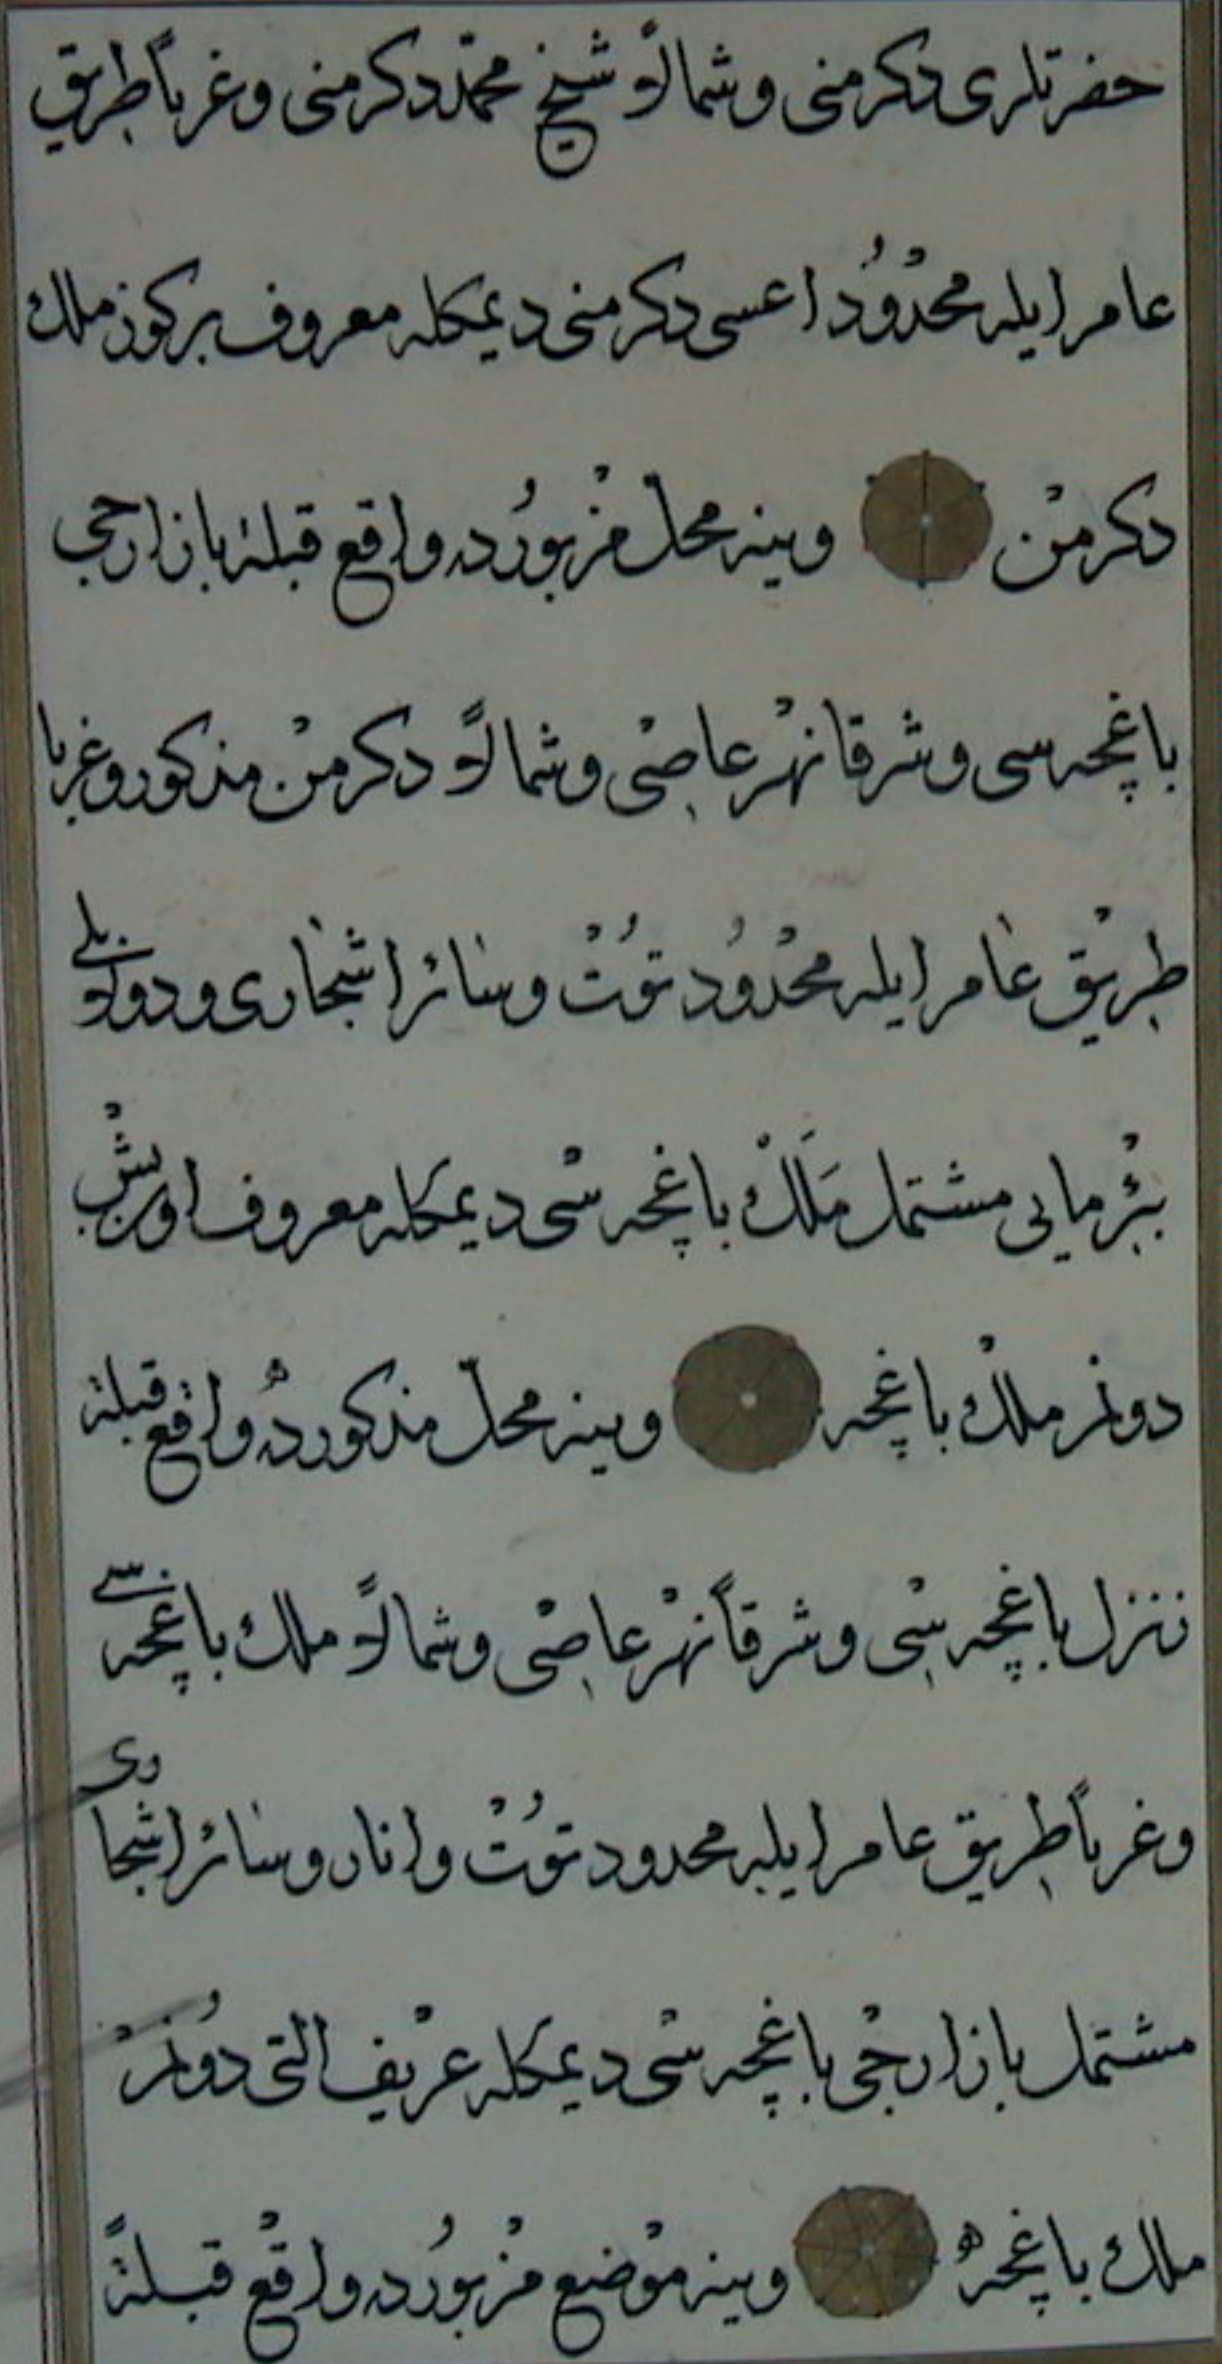 حضرتلری دكرمنی وشمالاً شیخ محمّد دكرمنی وغرباً طریق
عام ایله محدُودُ اعسی دكرمنی دیمكله معروف بر كوز ملك
دكرمن وینه محلّ مزبورده واقع قبلةً بازارجی
باغچه سی وشرقا نهر عاصی وشمالاً دكرمن مذكور وغربا
طریق عام ایله محدُود توُت وسائر اشجاری ودولابی
بئر مایی مشتمل مَلَكْ باغچه سی دیمكله معروف اون بش
دونم ملك باغچه وینه محلّ مذكورده واقع قبلة
باغچه سی وشرقاً نهر عاصی وشمالاً ملك باغچه سی
وغرباً طریق عام ایله محدود توُت وانار وسائر اشجاری
مشتمل بازارجی باغچه سی دیمكله عریف التی دُونم
ملك باغچه وینه موضع مزبورده واقع قبلةً